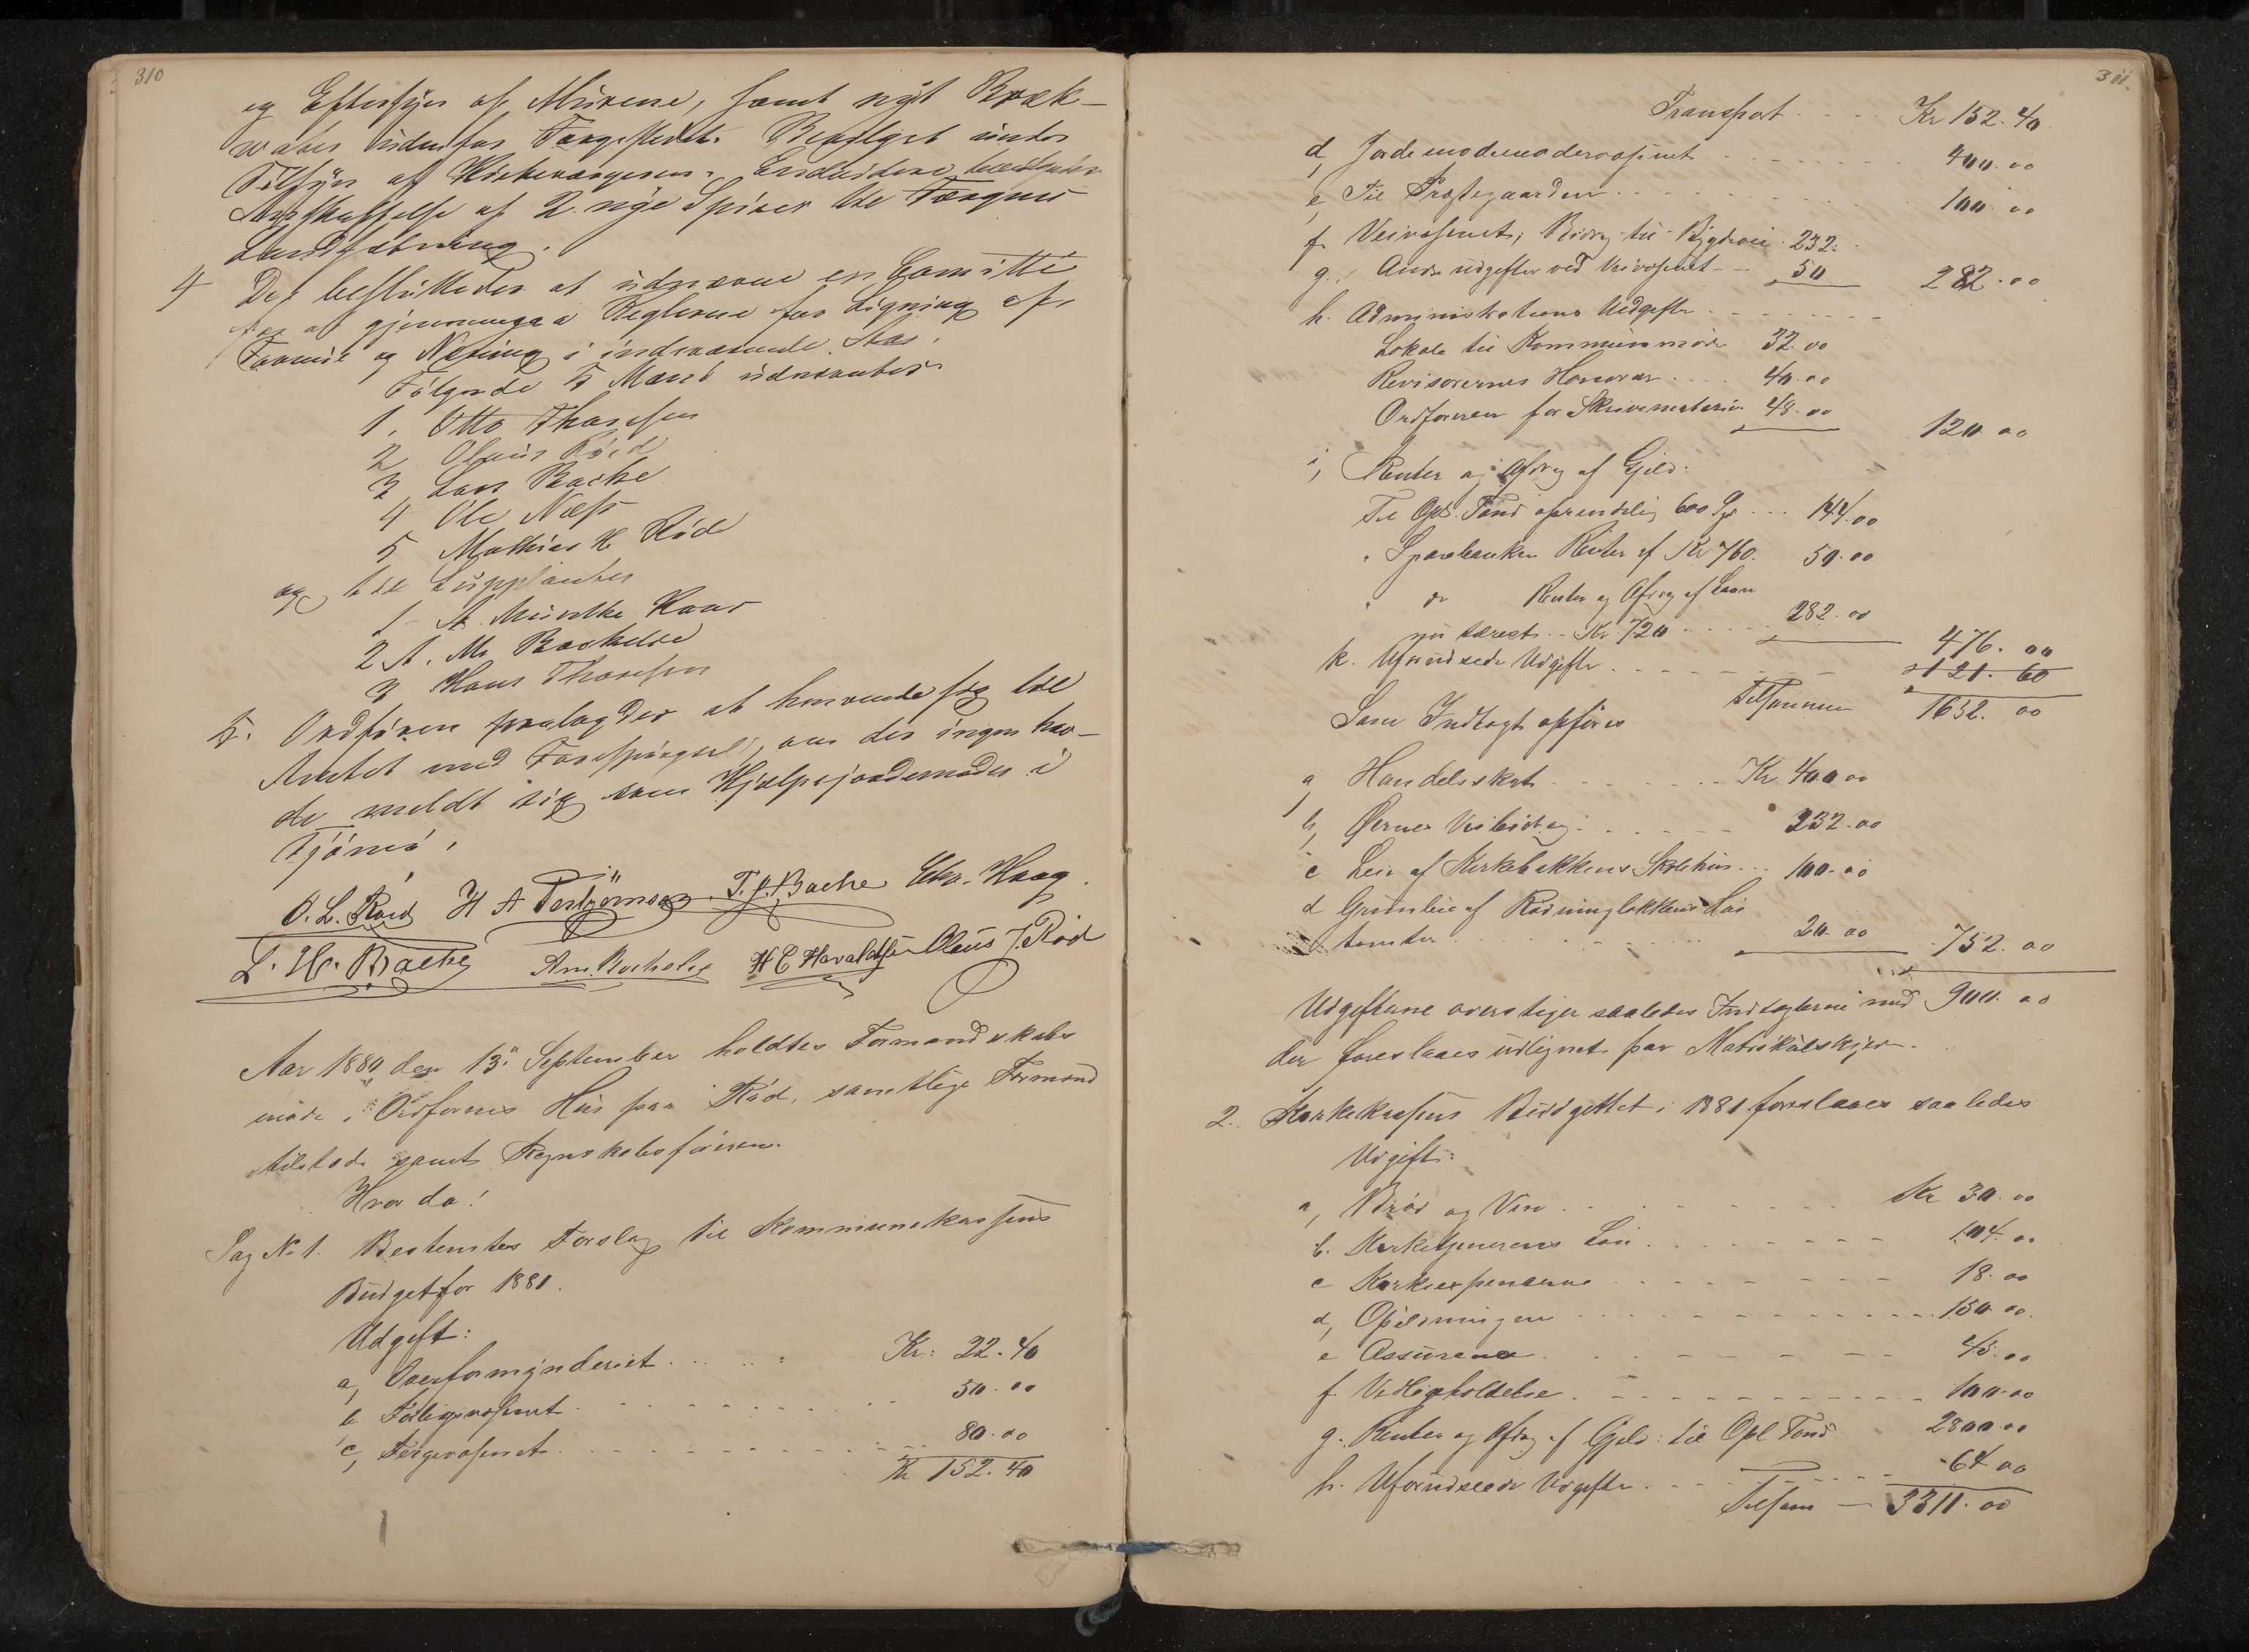 310
og Eftersyn af Murene, samt nyt Bræk-
vabes udenfor Færgestedet. Bevilget under
Tilsyn af Kirkeværgeren. Endvidere
Anskaffelse af 2 nye Spirer til Færgens
Landsætning.
4 Det besluttedes at udnævne en Comitte
for at gjennemgaa Reglerne for Ligning af
Formue og Næring i indeværende Aar.
Følgende 5 Mænd udnævntes
1. Otto Thoresen
2 Olaus Röd
3 Lars Bache
4 Ole Næss
5 Mathias H Röd
og til Supplanter
1 A. Muntke Haar
2 A. M. Bockelie
3 Hans Thoresen
5. Ordføren paalagdes at henvende sig til
Amtet med Forespørgsel, om der ingen hav-
de meldt sig som Hjælpejordemoder i
Tjømö.
O. L. Röed H A Torbjörnson T. J. Bache Chr. Haag
L. H. Bache Am. Bochelie H E Havaldsen Olaus J. Röd
Aar 1880 den 13de September holdtes Formandskabs
möde i Ordförens Hus paa Röd, samtlige Formænd
tilstæde samt Regnskabsföreren.
Hvor da!
Sag No 1. Bestemtes Forslag til Kommunekassens
Budget for 1881.
Udgift:
a, Overformynderiet . . . . Kr: 22.40
b Forligsvæsenet . . . . 50.00
c, Færgevæsenet . . . . 80.00
Kr 152.40
311.
Transport . . . . Kr 152.40
d, Jordemodervæsenet . . . . 400.00
e, Til Præstegaarden . . . . 100.00
f. Veivæsenet; Bidrag til Bygdevei 232.
g. Andre udgifter ved Veivæsenet 50 282.00
h. Administrations Udgifter . . . .
Lokale til Kommunemöde 32.00
Revisorernes Honorar . . . . 40.00
Ordföreren for Skrivemateriale 48.00 120.00
i, Renter og Afdrag af Gjeld:
Til Opl. Fond oprindelig 600 Spd . . . 144.00
" Sparebanken Renter af Kr 760. 50.00
" do Renter og Afdrag af Laan
nu tærest . . Kr 720 . . . . 282.00 476.00
k. Uforudsede Udgifter . . . . 121.60
Tilsammen 1652.00
Som Indtægt opføres
a, Handelsskat . . . . Kr 400.00
b, Øernes Veibidrag . . . . 232.00
c Leie af Kirkebakkens Skolehus . . . 100.00
d Grundleie af Rødningløkkens Hus
tomter . . . . 20.00 752.00
Udgifterne overstiger saaledes Indtægterne med 900.00
der foreslaaes udlignet paa Matrikulskyld.
2. Kirkekassens Budgettet i 1881 foreslaaes saaledes
Udgift:
a, Bröd og Vin . . . . Kr 30.00
b. Kirketjenerens Løn . . . . 104.00
c Kirkeexpenserne . . . . 18.00
d, Opildningen . . . . 150.00
e Assurence . . . . 45.00
f. Vedligeholdelse . . . . 100.00
g. Renter og Afdrag af Gjeld: til Opl Fond 2800.00
h. Uforudseede Udgifter . . . . 64.00
Tilsam — 3311.00